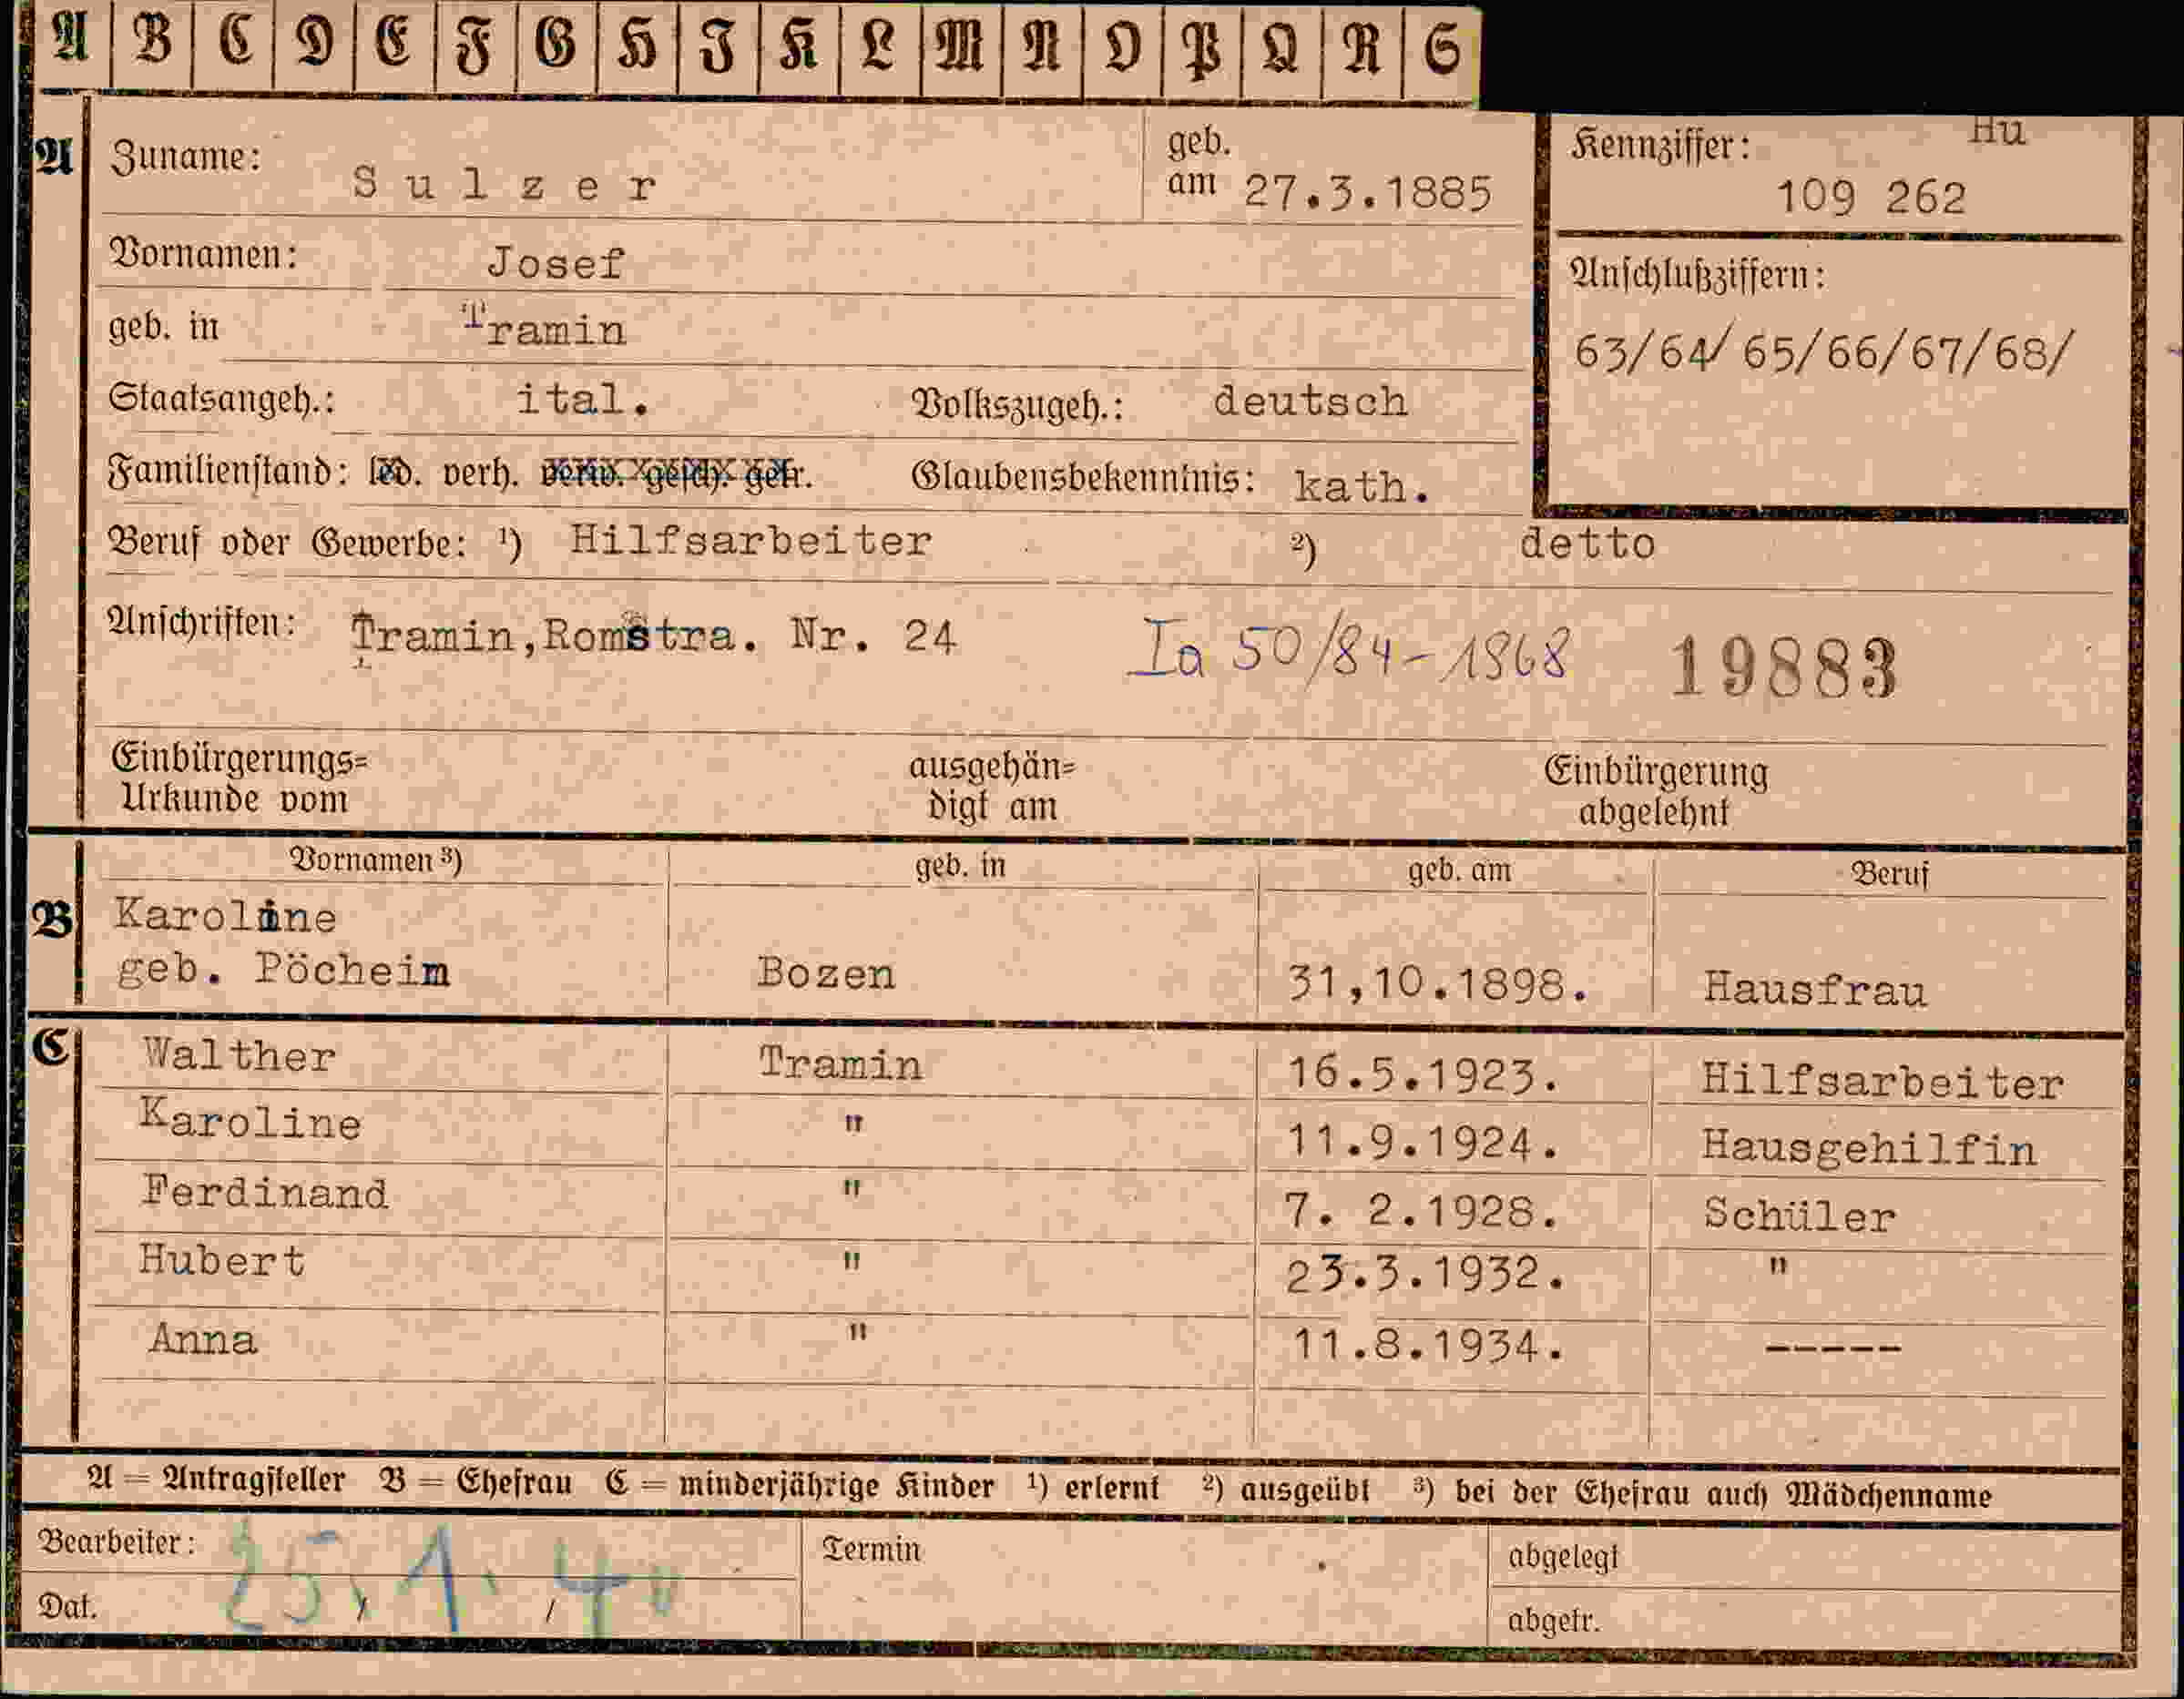 A B C D E F G H I K L M N O P Q R S
A Zuname: Sulzer geb. am 27.3.1885
Kennziffer: Hu 109 262
Vornamen: Josef
geb. in Tramin
Anschlußziffern: 63/64/65/66/67/68/
Staatsangeh.: ital. Volkszugeh.: deutsch
Familienstand: led. verh. verw. gesch. getr. Glaubensbekenntnis: kath.
Beruf oder Gewerbe: ¹) Hilfsarbeiter ²) detto
Anschriften: Tramin,Romstra. Nr. 24 Ia 50/84-1968 19883
Einbürgerungs= Urkunde vom ausgehän= digt am Einbürgerung abgelehnt
Vornamen ³) geb. in geb. am Beruf
B Karoline
geb. Pöcheim Bozen 31,10.1898. Hausfrau
C Walther Tramin 16.5.1923. Hilfsarbeiter
Karoline " 11.9.1924. Hausgehilfin
Ferdinand " 7. 2.1928. Schüler
Hubert " 23.3.1932. "
Anna " 11.8.1934. -----
A = Antragsteller B = Ehefrau C = minderjährige Kinder ¹) erlernt ²) ausgeübt ³) bei der Ehefrau auch Mädchenname
Bearbeiter: Termin abgelegt
Dat. 25.1.40 abgetr.